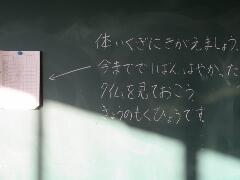 体いくぎにきがえましょう。
今まででいばんはやかった
タイムを見ておこう。
きょうのもくひょうです